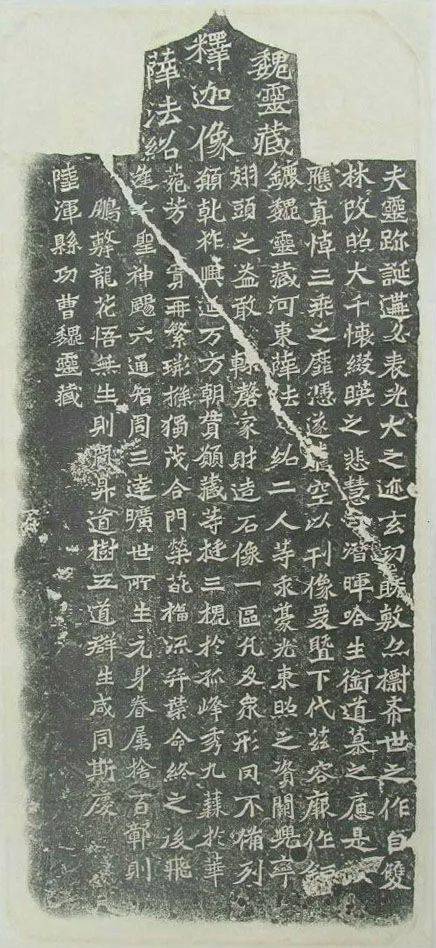 魏靈藏
釋迦像
薛法紹
夫靈跡誕遘必表光大之迹玄功既敷亦標希世之作自雙
林改照大千懷綴暎之悲慧潛暉唅生銜道慕之痛是
應真悼三乘之靡憑遂空以刊像爰暨下代茲容廓作鉅
鏕魏靈藏河東薛法紹二人等求豪光東照之資闕兜率
翅頭之益敢輒罄家財造石像一區凡及衆形罔不備列
願乾祚興延万方朝貫願藏等挺三槐於孤峰秀九蕀於華
菀芳實再繁荊條獨茂合門榮葩福流弈葉命終之後飛
逢聖神颺六通智周三達曠世所生元身眷屬捨百鄣則
鵬擊龍花悟無生則昇道樹五道群生咸同斯慶
陸渾縣功曹魏靈藏